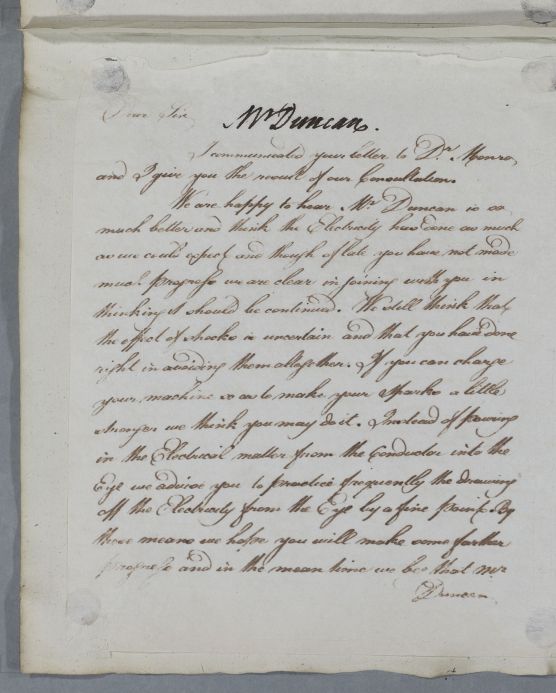 Dear Sir
Mr Duncan.
I communicated your letter to Dr. Monro
and I give you the result of our Consultation.
We are happy to hear Mr. Duncan is so
much better and think the Electricity has done as much
as we could expect and though of late you have not made
much progress we are clear in joining with you in
thinking it should be continued. We still think that
the effect of shocks is uncertain and that you have done
right in avoiding them altogether. If you can charge
your machine so as to make your sparks a little
stronger we think you may do it. Instead of passing
in the Electrical matter from the Conductor into the
Eye we advise you to practice frequently the drawing
off the Electricity from the Eye by a fine point. By
these means we hope you will make some farther
progress and in the mean time we beg that Mr
Duncan